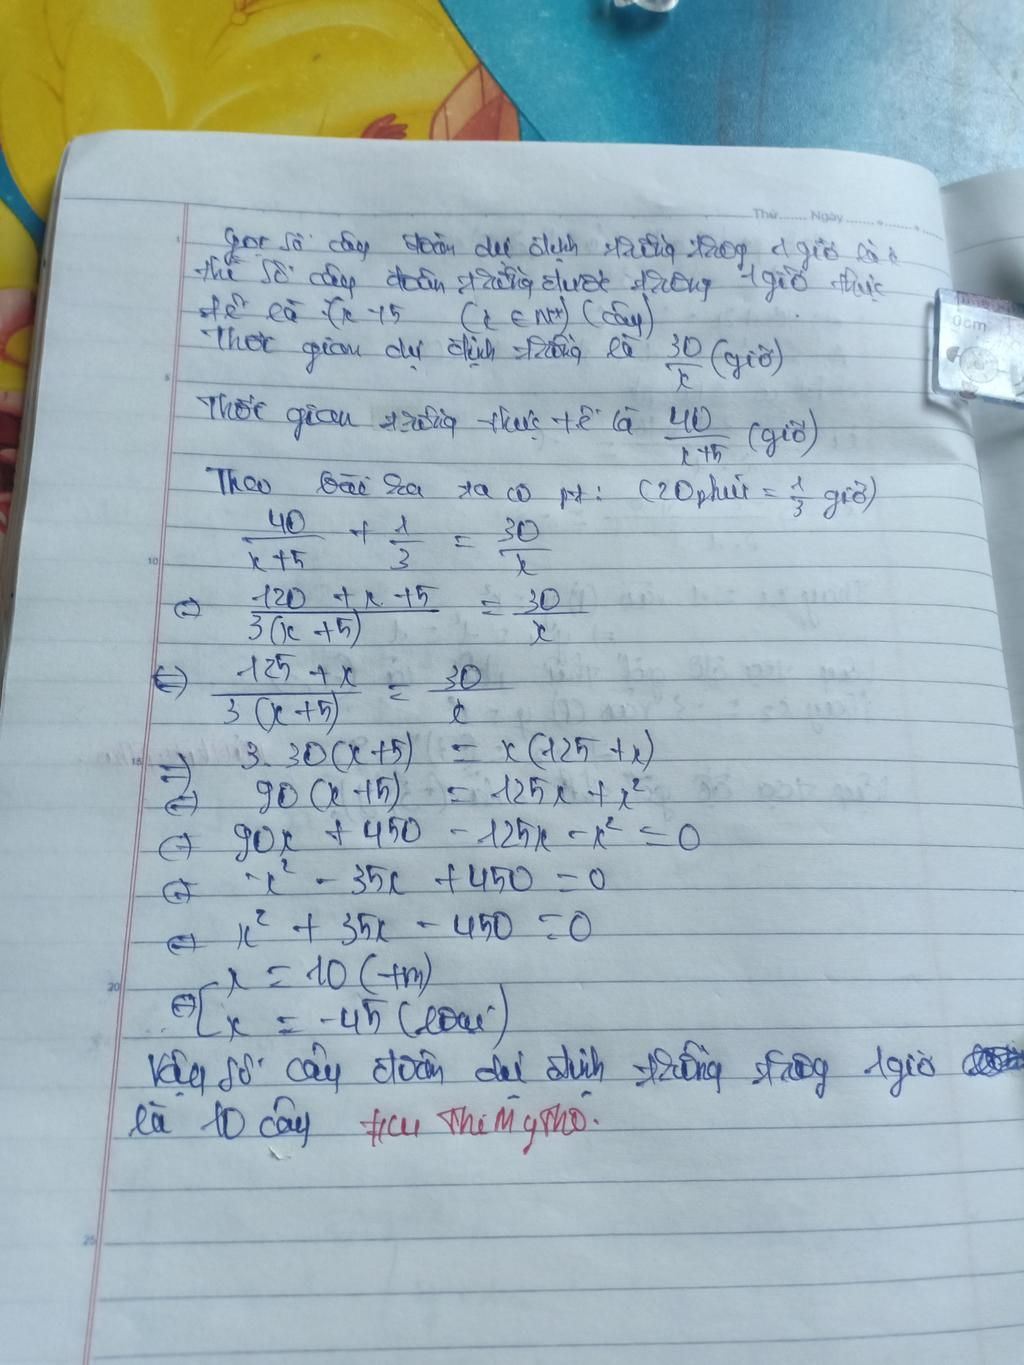 Thứ ....... Ngày ...........
Gọi số cây đoàn dự định trồng trong 1 giờ là x
thì số cây đoàn trồng được trong 1 giờ thực
tế là x + 5 (x ∈ N*) (cây)
Thời gian dự định trồng là 30/x (giờ)
Thời gian trồng thực tế là 40/(x+5) (giờ)
Theo bài ra ta có pt: (20 phút = 1/3 giờ)
40/(x+5) + 1/3 = 30/x
⇔ (120 + x + 5)/(3(x + 5)) = 30/x
⇔ (125 + x)/(3(x+5)) = 30/x
⇒ 3.30(x+5) = x(125 + x)
⇔ 90(x+5) = 125x + x²
⇔ 90x + 450 - 125x - x² = 0
⇔ -x² - 35x + 450 = 0
⇔ x² + 35x - 450 = 0
⇔ [ x = 10 (tm)
x = -45 (loại)
Vậy số cây đoàn dự định trồng trong 1 giờ
là 10 cây Thị Mỹ Thơ.
0cm
5
10
15
20
25